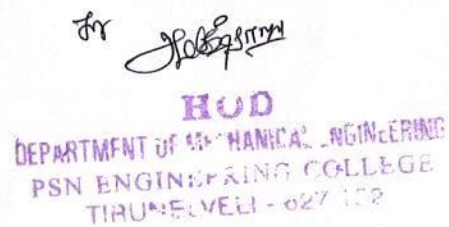 for
HOD
DEPARTMENT OF MECHANICAL ENGINEERING
PSN ENGINEERING COLLEGE
TIRUNELVELI - 627 152